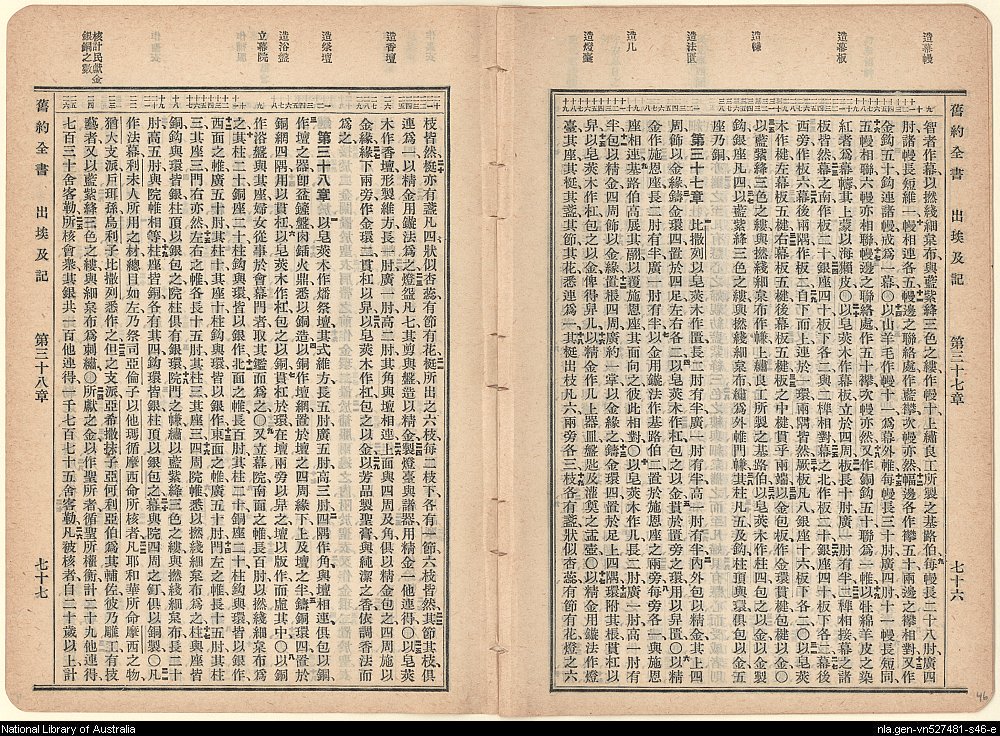 舊約全書 出埃及記 第三十七章 七十六
造幕幔
造幕板
造㡘
造法匱
造几
造燈臺
智者作幕以撚綫細枲布與藍紫絳三色之縷作幔十上繡良工所製之基路伯每幔長二十八肘廣四
肘諸幔長短維一幔相連各五幔邊之聯絡處作藍襻次幔亦然幅邊各作襻五十兩邊之襻相對又作
金鈎五十鈎連諸幔成爲一幕〇以山羊毛作幔十一爲幕外帷每幔長三十肘廣四肘十一幔長短同
五幔相聯六幔亦相聯幔邊之聯絡處作五十襻次幔亦然又作銅鈎五十聯爲一帷以牡綿羊皮之染
紅者爲幕幬其上蒙以海獺皮〇以皂莢木作幕板立於四周板長十肘廣一肘有半二樺相接幕之諸
板皆然幕之南作板二十銀座四十板下各二與二樺相對幕之北作板二十銀座四十板下各二幕後
西旁作板六幕後兩隅作板二自下而上連於一環兩隅皆然厥板凡八銀座十六板下各二〇以皂莢
木作楗左幕板五楗右幕板五楗後幕板五楗中楗貫乎兩端以金包板作金環貫楗包楗以金〇
以藍紫絳三色之縷與撚綫細枲布作㡘上繡良工所製之基路伯以皂莢木作柱四包之以金製金
鈎銀座凡四以藍紫絳三色之縷與撚綫細枲布繡爲外帷門㡘其柱凡五及鈎柱頂與環俱包以金五
座乃銅
第三十七章 比撒列以皂莢木作匱長二肘有半廣一肘有半高一肘有半內外包以精金其上四
周飾以金緣鑄金環四置於四足左右各二以皂莢木作杠包之以金貫於匱旁之環用以舁匱〇以精
金作施恩座長二肘有半廣一肘有半以金用鏇法作基路伯二置於施恩座之兩旁每旁各一與施恩
座相連基路伯高展其翮以覆施恩座其面向之彼此相對〇以皂莢木作几長二肘廣一肘高一肘有
半包以精金四周飾以金緣置棖四周廣約一掌以金緣之鑄金環四置於足上四隅環附其棖用以
舁几以皂莢木作杠包之以金俾得舁几以精金作几上器皿盤匙及灌奠之盂壺〇以精金用鏇法作燈
臺其座其梃其盞其節其花悉連爲一其梃出枝凡六兩旁各三枝各有盞狀似杏蕊有節有花燈之六
舊約全書 出埃及記 第三十八章 七十七
造香壇
造祭壇
造浴盤
立幕院
核計民獻金銀銅之數
枝皆然梃亦有盞凡四狀似杏蕊有節有花梃所出之六枝每二枝下各有一節六枝皆然其節其枝俱
連爲一以精金用鏇法爲之燈盞凡七其剪與盤造以精金製燈臺與諸器用精金一他連得〇以皂莢
木作香壇形製維方長一肘廣一肘高二肘角與壇相連上面與四周及角俱以精金包之四周施以
金緣緣下兩旁作金環二貫杠以舁以皂莢木作杠包之以金以芳品製聖膏與純潔之香依調香法而
爲之
第三十八章 以皂莢木作燔祭壇其式維方長五肘廣五肘高三肘四隅作角與壇相連俱包以銅
作壇之器卽盆鏟盤肉錨火鼎悉以銅造以銅作壇網置於壇之四周緣下上及壇之半鑄銅環四置於
銅網四隅用以貫杠以皂莢木作杠包之以銅貫杠於環在壇兩旁以舁之壇以版作而虛其中〇以銅
作浴盤與其座婦女從事於會幕門者取其鑑而爲之〇又立幕院南面之帷長百肘以撚綫細枲布爲
之其柱二十銅座二十柱鈎與環皆以銀作北面之帷長百肘其柱二十銅座二十柱鈎與環皆以銀作
西面之帷廣五十肘其柱十其座十柱鈎與環皆以銀作東面之帷廣五十肘門左之帷長十五肘其柱
三其座三門右亦然左右之帷各長十五肘其柱三其座三四周院帷悉以撚綫細枲布爲之柱與座皆
銅鈎與環皆銀柱頂以銀包之院柱俱有銀環院門之㡘繡以藍紫絳三色之縷與撚綫細枲布長二十
肘高五肘與院帷相等柱座皆銅各有其四鈎環皆銀柱頂以銀包之幕與院四周之釘俱以銅製〇凡
作法幕利未人所用之材總目如左乃祭司亞倫子以他瑪循摩西命所核者凡耶和華所命摩西之物
猶大支派戶珥孫烏利子比撒列悉作之但之支派亞希撒抹子亞何利亞伯爲其輔佐彼乃雕工有技
藝者又以藍紫絳三色之縷與細枲布爲刺繡〇所獻之金以作聖所者循聖所權衡計二十九他連得
七百三十舍客勒所核會衆其銀共一百他連得一千七百七十五舍客勒凡被核者自二十歲以上計
National Library of Australia
nla.gen-vn527481-s46-e
46